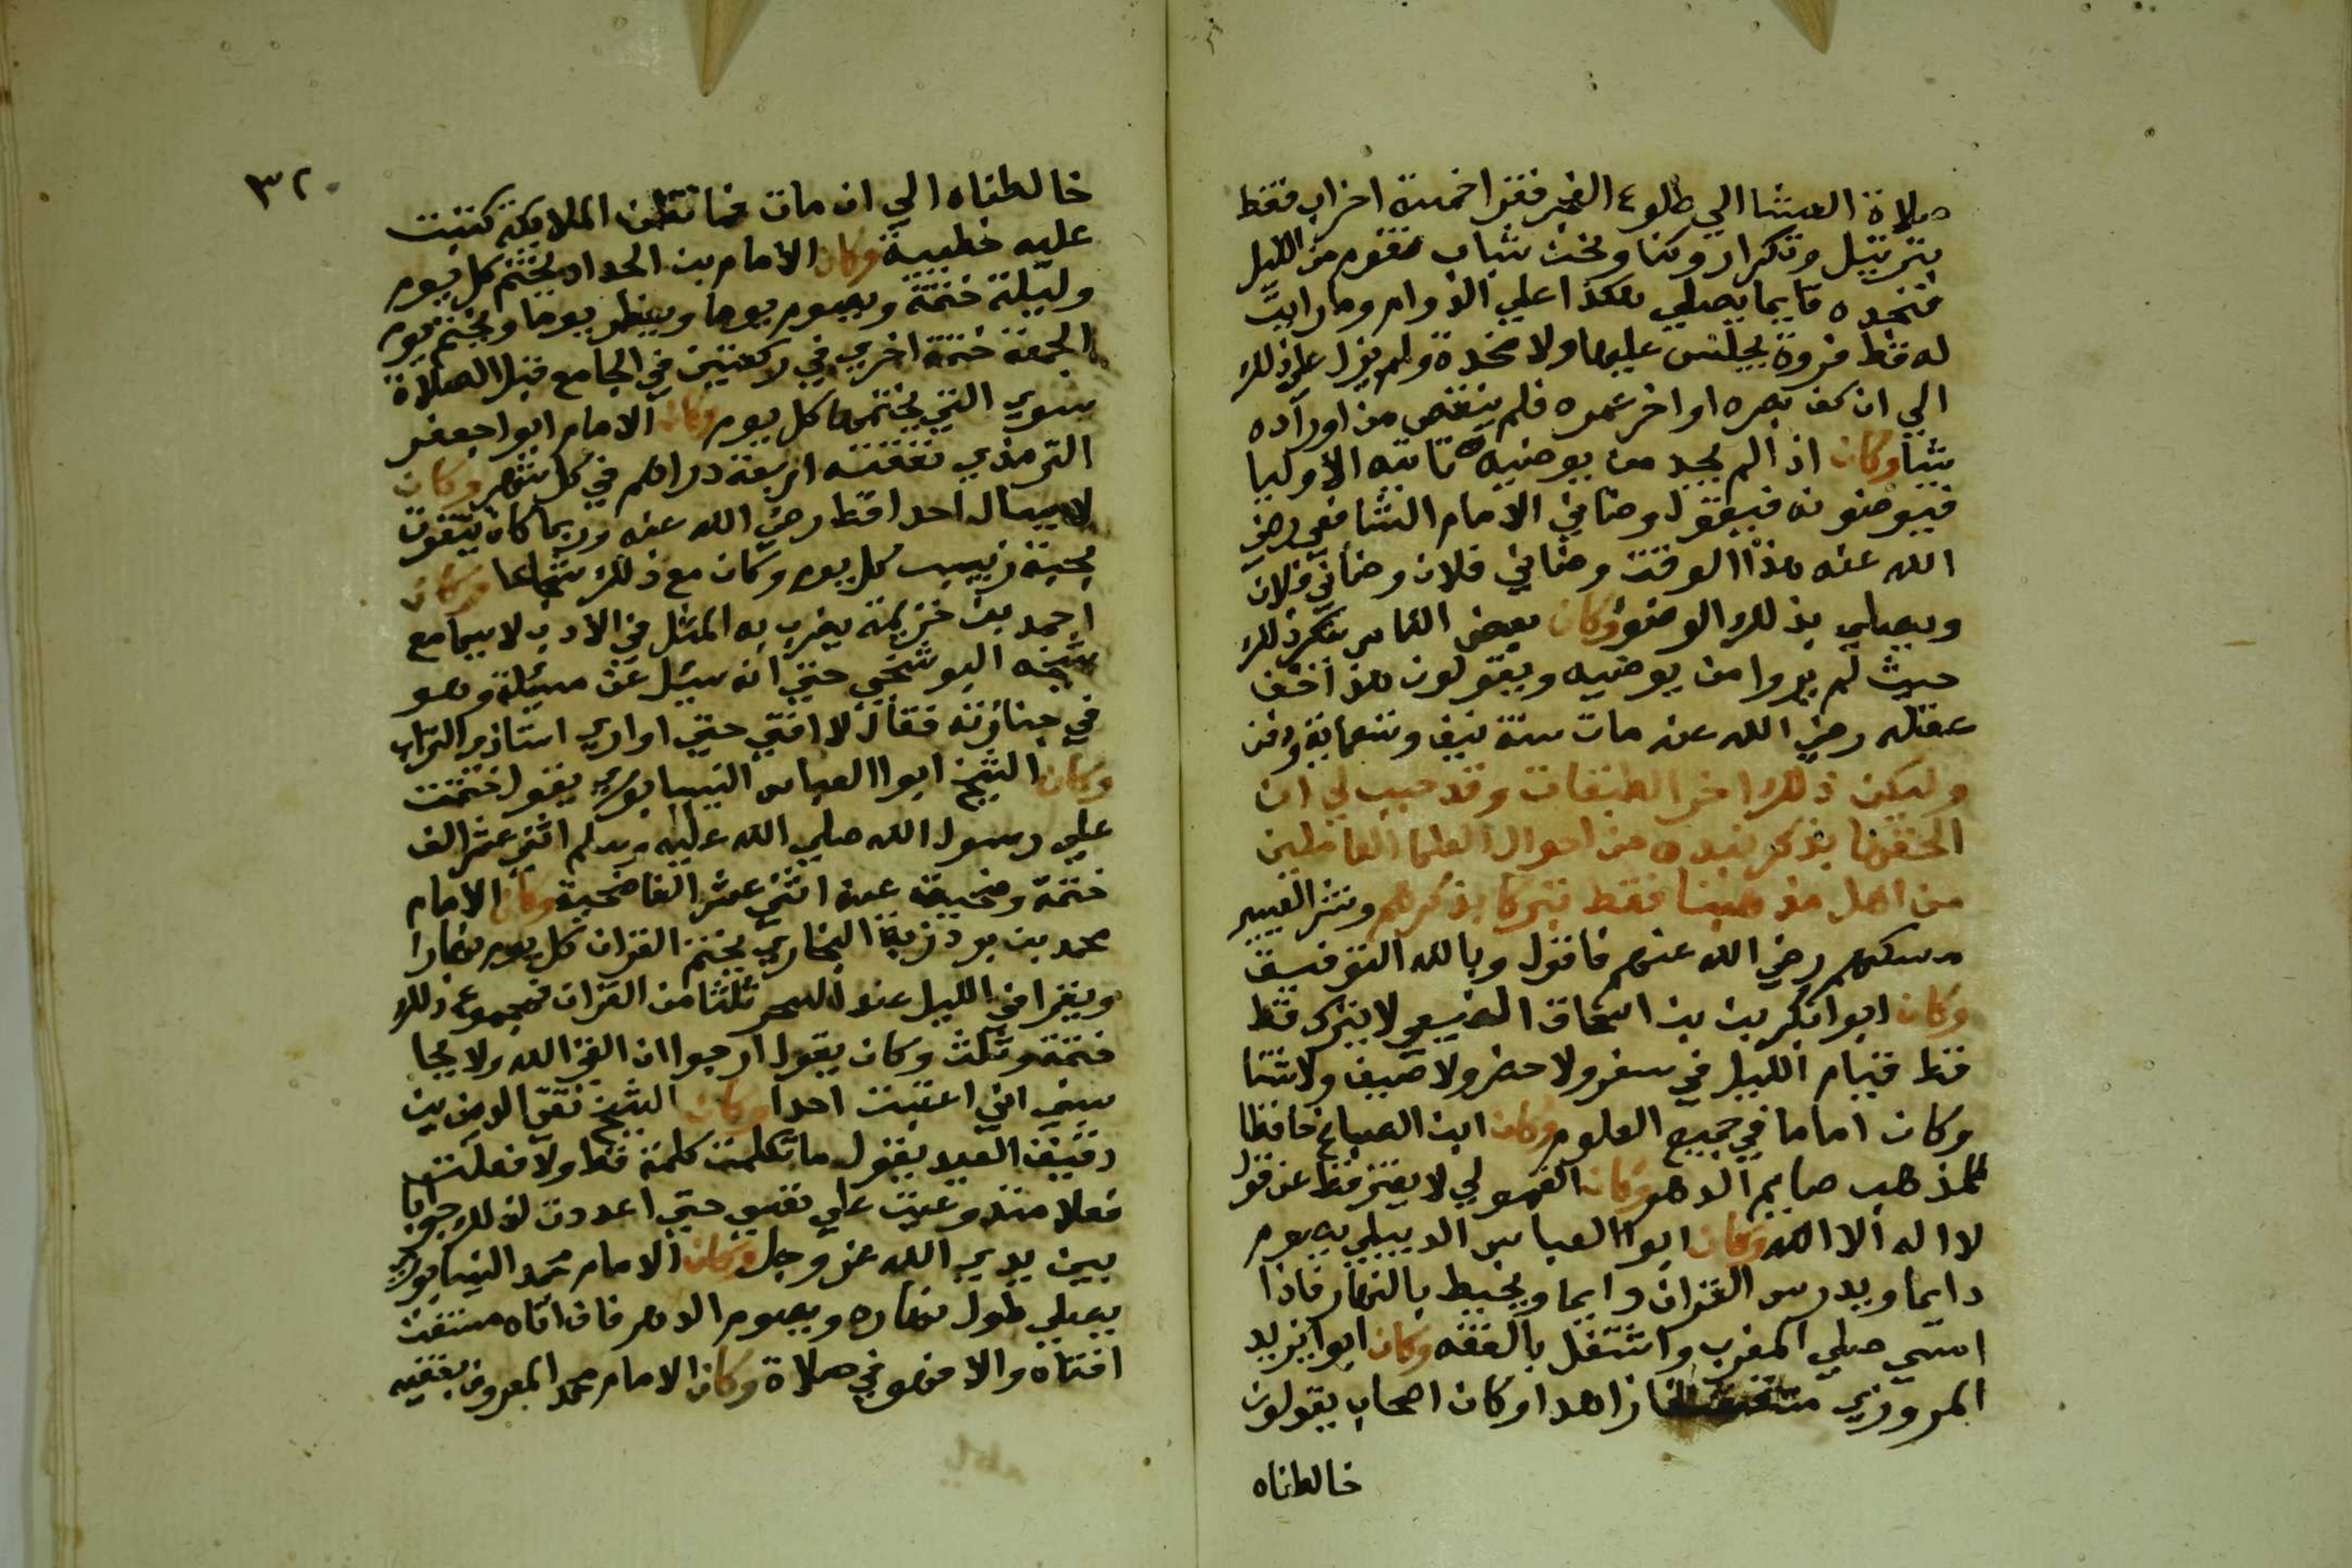 صلاة العشا الي طلوع الفجر فقرا خمسة احزاب فقط
بترتيل وتكرار وكنا ونحن شباب نقوم من الليل
فنجده قايما يصلي هكذا علي الدوام وما رايت
له قط فروة يجلس عليها ولا مخدة ولم يزل علي ذلك
الي ان كف بصره اواخر عمره فلم ينقص من اوراده
شيا وكان اذا لم يجد من يوضيه تاتيه الاوليا
فيوضونه فيقول وضاني الامام الشافعي رضي
الله عنه هذا الوقت وضاني فلان وضاني فلان
ويصلي بذلك الوضو وكان بعض الناس ينكر ذلك
حيث لم يروا من يوضيه ويقولون هذا خف
عقله رضي الله عنه مات سنة نيف وتسعماية ودفن
وليكن ذلك اخر الطبقات وقد حبب لي ان
اختمها بذكر نبذه من احوال العلما العاملين
من اهل مذهبنا فقط تبركا بذكرهم ونشر العبير
مسكهم رضي الله عنهم فاقول وبالله التوفيق
وكان ابوا بكر بن اسحاق الضبعي لا يترك قط
قط قيام الليل في سفر ولا حضر ولا صيف ولا شتا
وكان اماما في جميع العلوم وكان ابن الصباغ حافظا
للمذهب صايم الدهر وكان لا يفتر قط عن قول
لا اله الا الله وكان ابوا العباس الديبلي يصوم
دايما ويدرس القران دايما ويخيط بالنهار فاذا
امسي صلي المغرب واشتغل بالفقه وكان ابوا يزيد
المروزي زاهدا وكان اصحاب يقولون
خالطناه
٣٢٠
خالطناه الي ان مات فما نظن الملايكة كتبت
عليه خطيية وكان الامام بن الحداد يختم كل يوم
وليلة ختمة ويصوم يوما ويفطر يوما ويختم يوم
الجمعة ختمة اخري في ركعتين في الجامع قبل الصلاة
سوي التي يختمها كل يوم وكان الامام ابوا جعفر
الترمذي نفقته اربعة دراهم في كل شهر وكان
لا يسال احدا قط رضي الله عنه وربما كان يتقوت
بحبة زبيب كل يوم وكان مع ذلك شجاعا وكان
احمد بن خزيمة يضرب به المثل في الادب لا سيما مع
شيخه البوشنجي حتي انه سيل عن مسئلة وهو
في جنازته فقال لا افتي حتي اواري استاذي التراب
وكان الشيخ ابوا العباس النيسابوري يقول ختمت
علي رسول الله صلي الله عليه وسلم اثني عشر الف
ختمة وضحيت عنه اثني عشر الفا ضحية وكان الامام
محمد بن بردزبة البخاري يختم القران كل يوم نهارا
ويقرا في الليل عند السحر ثلثا من القران فمجموع ذلك
ختمة وثلث وكان يقول ارجوا ان القي الله ولا يحا
سبني اني اغتبت احدا وكان الشيخ تقي الدين بن
دقيق العيد يقول ما تكلمت كلمة قط ولا فعلت
فعلا منذ وعيت علي نفسي حتي اعددت لذلك جوابا
بين يدي الله عز وجل وكان الامام محمد النيسابوري
يصلي طول نهاره ويصوم الدهر فان اتاه مستفت
افتاه والا فهو في صلاة وكان الامام محمد المعروف بفقيه